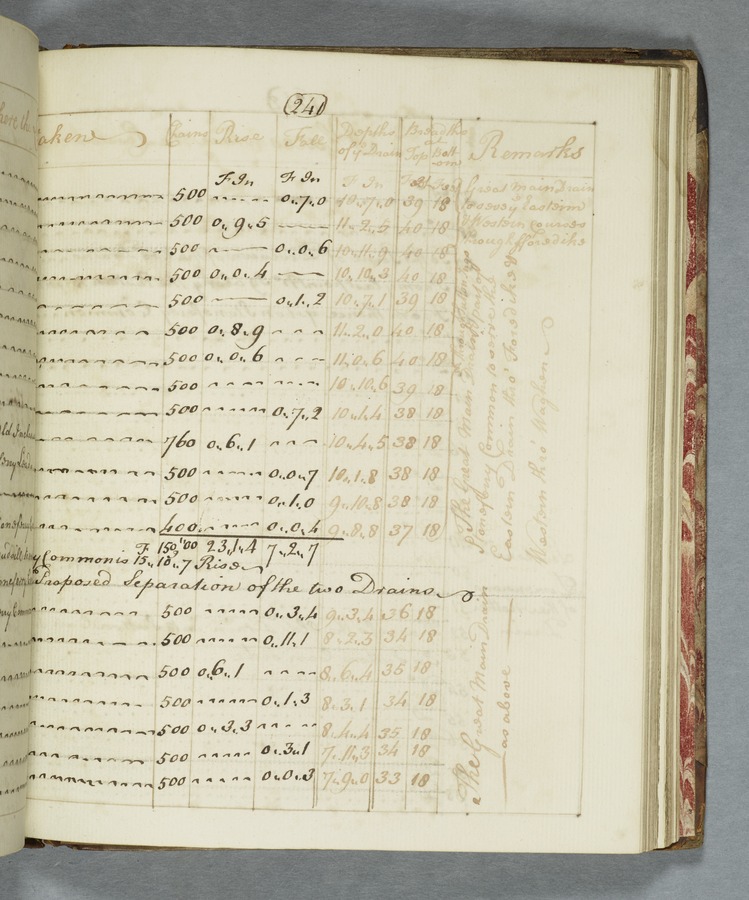 241
here the
aken Chains Rise Fall Depths of ye Drain Breadths at Top Bottom Remarks
F In F In F In
500 0,,7,,0 10,,7,,0 39 18 Great Main Drain
to convey Eastern
500 0,,9,,5 11,,2,,5 40 18 & Western Courses
through Fforedike
500 0,,0,,6 10,,11,,9 40 18
500 0,,0,,4 10,,10,,3 40 18
500 0,,1,,2 10,,7,,1 39 18
500 0,,8,,9 11,,2,,0 40 18
500 0,,0,,6 11,,0,,6 40 18
500 10,,10,,6 39 18
500 0,,7,,2 10,,1,,4 38 18
760 0,,6,,1 10,,4,,5 38 18
500 0,,0,,7 10,,1,,8 38 18
500 0,,1,,0 9,,10,,8 38 18
400 0,,0,,4 9,,8,,8 37 18
The Great Main Drain
Common to convey the
Eastern Drain thro' Foredike &
Western thro' Waghen
F 23,,1,,4 7,,2,,7
y Common is 15,,10,,7 Rise
Proposed Separation of the two Drains
500 0,,3,,4 9,,3,,4 36 18
500 0,,11,,1 8,,2,,3 34 18
500 0,,6,,1 8,,6,,4 35 18
500 0,,1,,3 8,,3,,1 34 18
500 0,,3,,3 8,,4,,4 35 18
500 0,,3,,1 7,,11,,3 34 18
500 0,,0,,3 7,,9,,0 33 18
The Great Main Drain
as above